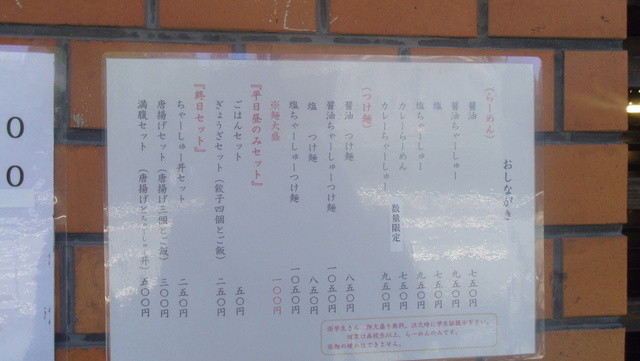 おしながき
(らーめん)
醤油 七五〇円
醤油ちゃーしゅー 九五〇円
塩 七五〇円
塩ちゃーしゅー 九五〇円
カレーらーめん 七五〇円
カレーちゃーしゅー 数量限定 九五〇円
(つけ麺)
醤油 つけ麺 八五〇円
醤油ちゃーしゅーつけ麺 一〇五〇円
塩 つけ麺 八五〇円
塩ちゃーしゅーつけ麺 一〇五〇円
※麺大盛 一〇〇円
『平日昼のみセット』
ごはんセット 五〇円
ぎょうざセット(餃子四個とご飯) 二五〇円
『終日セット』
ちゃーしゅー丼セット 二五〇円
唐揚げセット(唐揚げ三個とご飯) 三〇〇円
満腹セット(唐揚げとちゃーしゅー丼) 五〇〇円
※学生さん、麺大盛り無料。注文時に学生証提示下さい。
対象は高校生以上、らーめんのみです。
麺物の替わりはできません。
0
0